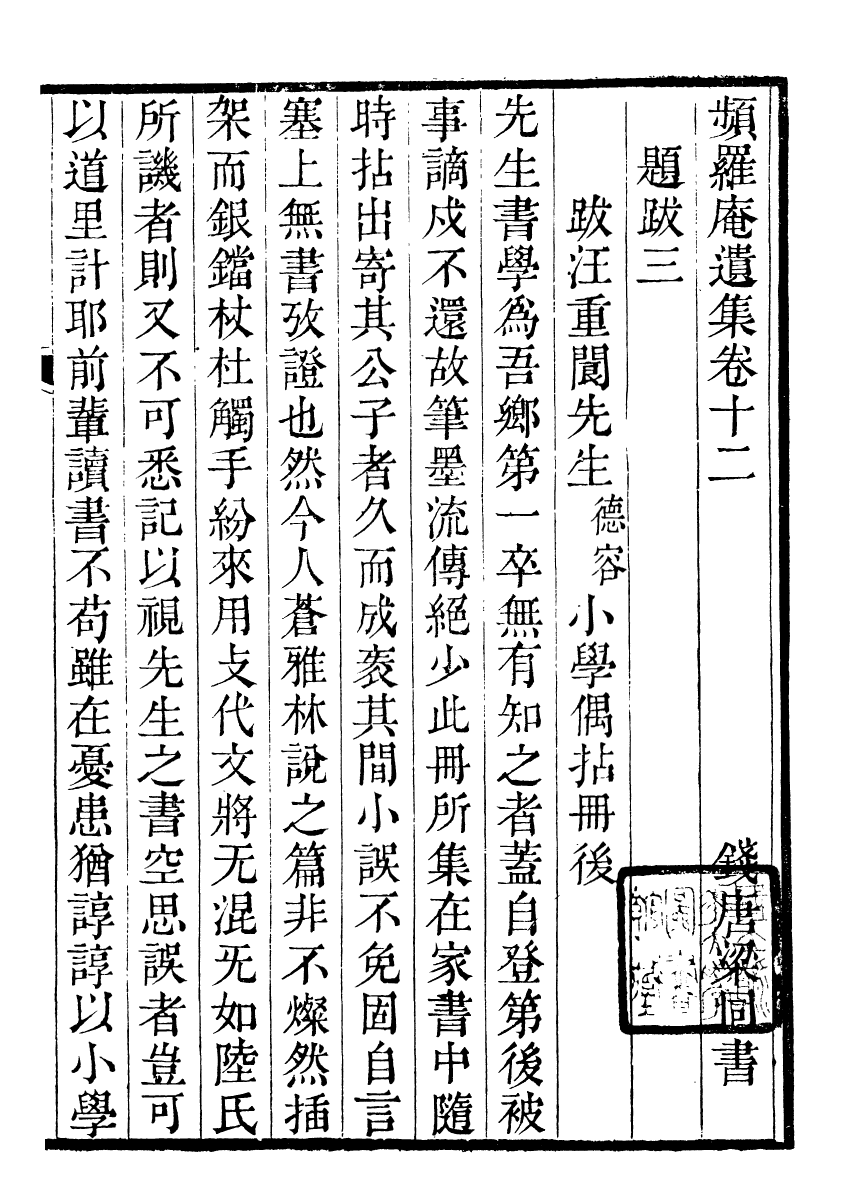 頻羅庵遺集卷十二　錢唐梁同書
題跋三
跋汪重閬先生德容小學偶拈冊後
先生書學爲吾鄉第一卒無有知之者蓋自登第後被
事謫戍不還故筆墨流傳絕少此冊所集在家書中隨
時拈出寄其公子者久而成袠其間小誤不免固自言
塞上無書攷證也然今人蒼雅林說之篇非不燦然插
架而銀鐺杕杜觸手紛來用攴代文將无混旡如陸氏
所譏者則又不可悉記以視先生之書空思誤者豈可
以道里計耶前輩讀書不苟雖在憂患猶諄諄以小學